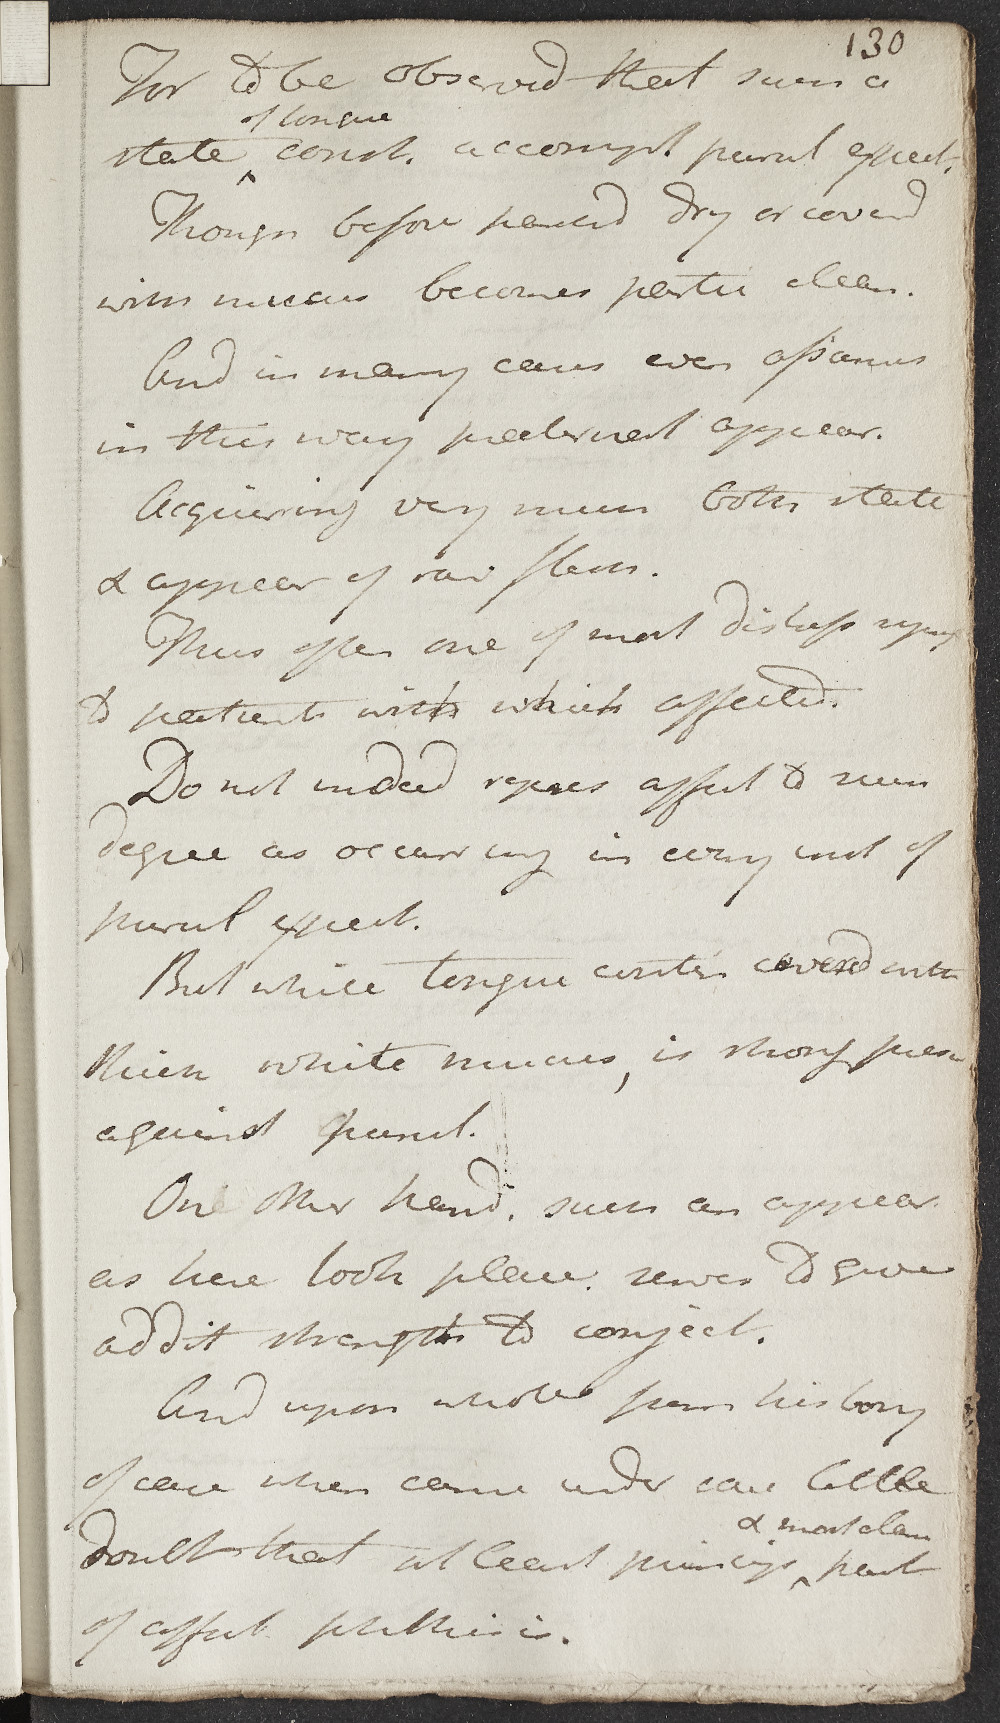 130
For to be observed that such a
of tongue
state const. accompt. purul expect.
Though before parched dry or coverd
with mucus becomes partic clean.
And in many cases even assumes
in this way preternat appear.
Acquiring very much both state
& appear of raw flesh.
Thus often one of most distress
to patients with which affected.
Do not indeed affect to such
degree as occurring in every inst of
purul expect.
But while tongue contin covered with
thick white mucus, is strong presu
against purul.
One other hand. such an appear.
as here took place. serves to give
addit strength to conject.
And upon whole from history
of case when came under care little
& most alarm
doubt that at least principl part
of affect phthisis.